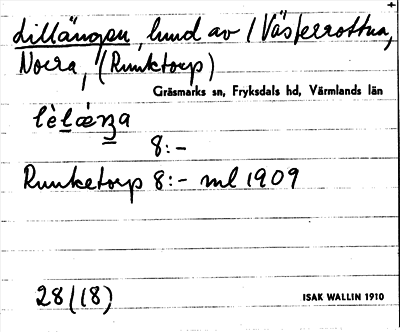 Lillängen, lund av / Västerrottna,
Norra, (Runketorp)
Gräsmarks sn, Fryksdals hd, Värmlands län
8:-
Runketorp 8:- ml 1909
28(18)
ISAK WALLIN 1910